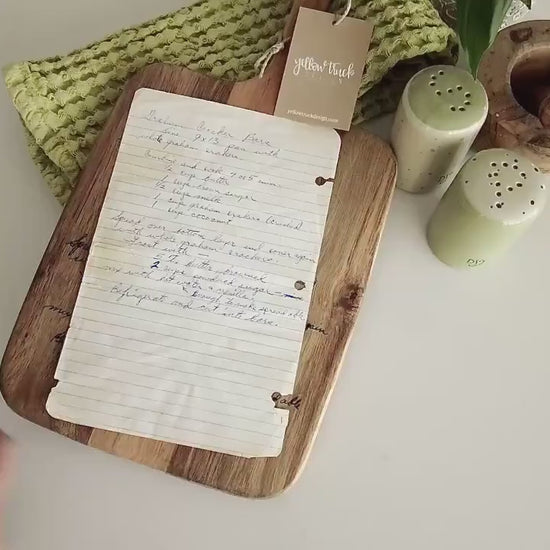 yellow truck
DESIGN
yellowtruckdesign.com
Graham Cracker Bars
Line 9 x 13 pan with
whole graham crackers
Combine and cook 4 or 5 min.
½ cup butter
1 cup brown sugar
½ cup milk
1 cup graham crackers (crushed)
1 cup coconut
Spread over bottom layer and cover again
with whole graham crackers.
Frost with —
butter browned
2 cups powdered sugar
mix with hot water & vanilla
enough to make spreadable
Refrigerate and cut into bars.